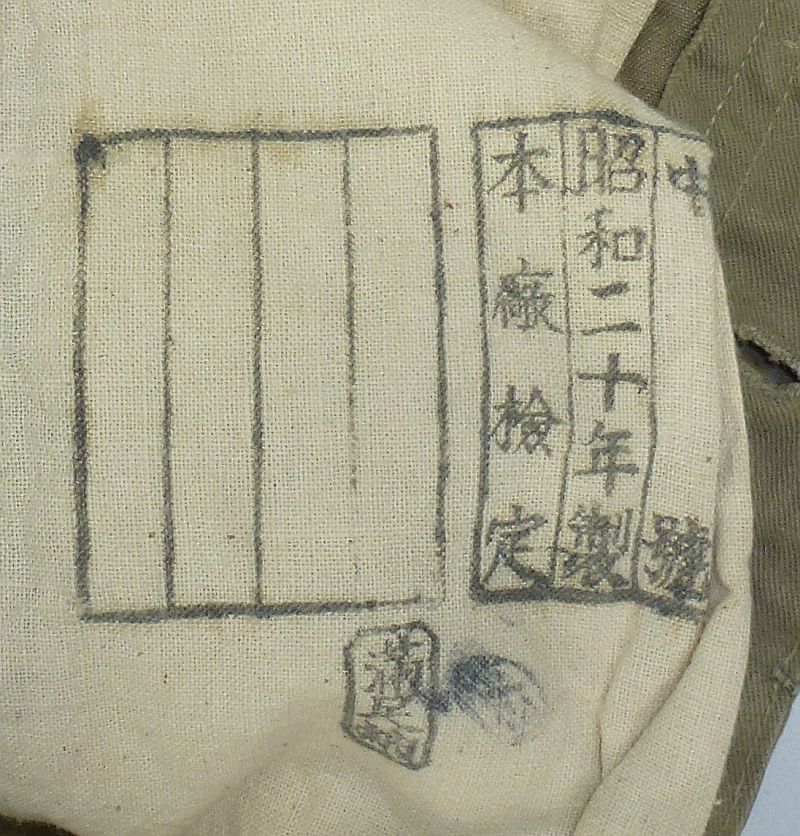 中號
昭和二十年製
本廠檢定